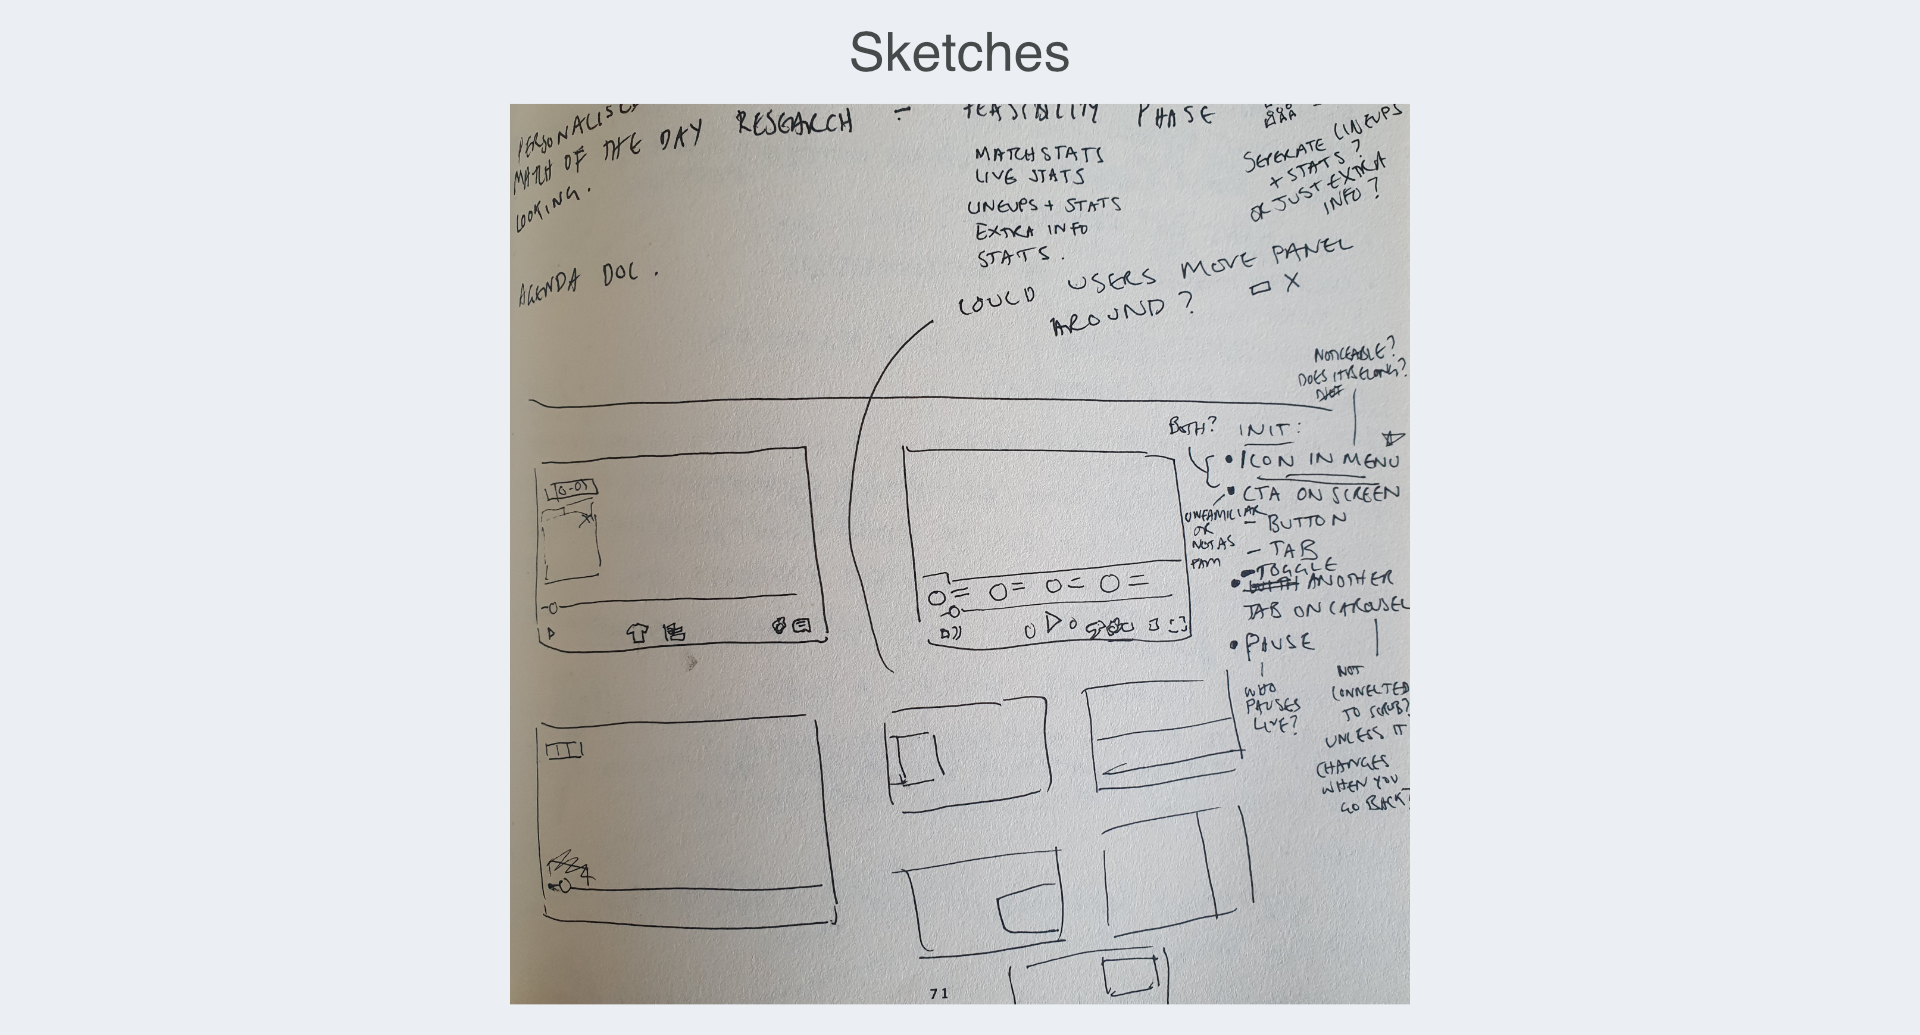 Sketches
PERSONALISED
MATCH OF THE DAY
LOOKING.
RESEARCH - FEASIBILITY PHASE
MATCH STATS
LIVE STATS
LINEUPS + STATS
EXTRA INFO
STATS.
SEPERATE LINEUPS
+ STATS?
OR JUST EXTRA
INFO?
AGENDA DOC.
COULD USERS MOVE PANEL
AROUND?
X
NOTICEABLE?
DOES IT BELONG?
BOTH?
INIT:
• ICON IN MENU
• CTA ON SCREEN
- BUTTON
- TAB
- TOGGLE
UNFAMILIAR
OR
NOT AS
• ANOTHER
TAB ON CAROUSEL
• PAUSE
WHO
PAUSES
LIVE?
NOT
CONNECTED
TO SCRUB?
UNLESS IT
CHANGES
WHEN YOU
GO BACK?
0-0
71